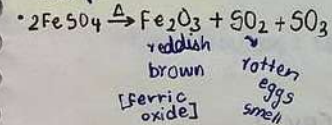 • 2FeSO4 —Δ→ Fe2O3 + SO2 + SO3
reddish
brown
[ferric
oxide]
rotten
eggs
smell